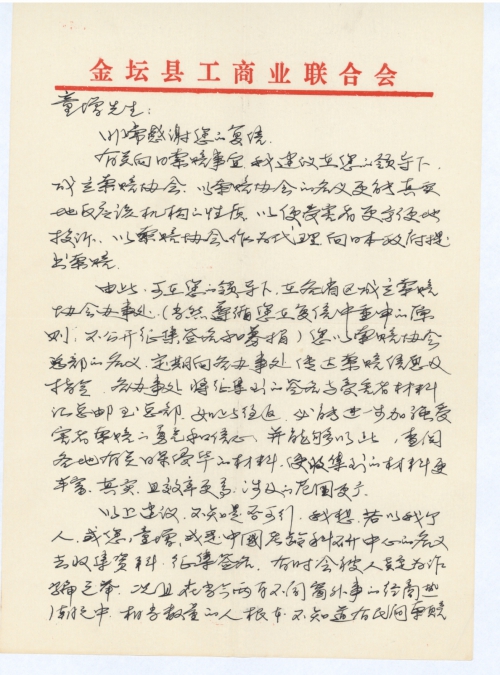 金坛县工商业联合会
童增先生:
非常感谢您的复信.
有关向日索赔事宜,我建议在您的领导下,
成立索赔协会.以索赔协会的名义更能真实
地反应该机构的性质,以便受害者更方便地
投诉.以索赔协会作为代理向日本政府提
出索赔.
由此,可在您的领导下,在各省也成立索赔
协会办事处.(当然遵循您在复信中重申的原
则:不公开征集签名和募捐)您以索赔协会
总部的名义,定期向各办事处传达索赔信息及
指令.各办事处将征集到的签名与受害者材料
汇总邮至总部.如此往返,必能进一步加强受
害者索赔的勇气和信心,并能够以此,查阅
各地有关日军侵华的材料,使收集到的材料更
丰富、真实,且效率更高,涉及的范围更广.
以上建议,不知是否可行.我想,若以我个
人,或您,童增,或是中国老龄科研中心的名义
去收集资料,征集签名,有时会被人误为诈
骗之举.况且在当今两耳不闻窗外事的经商热
潮之中,相当数量的人根本不知道有民间索赔